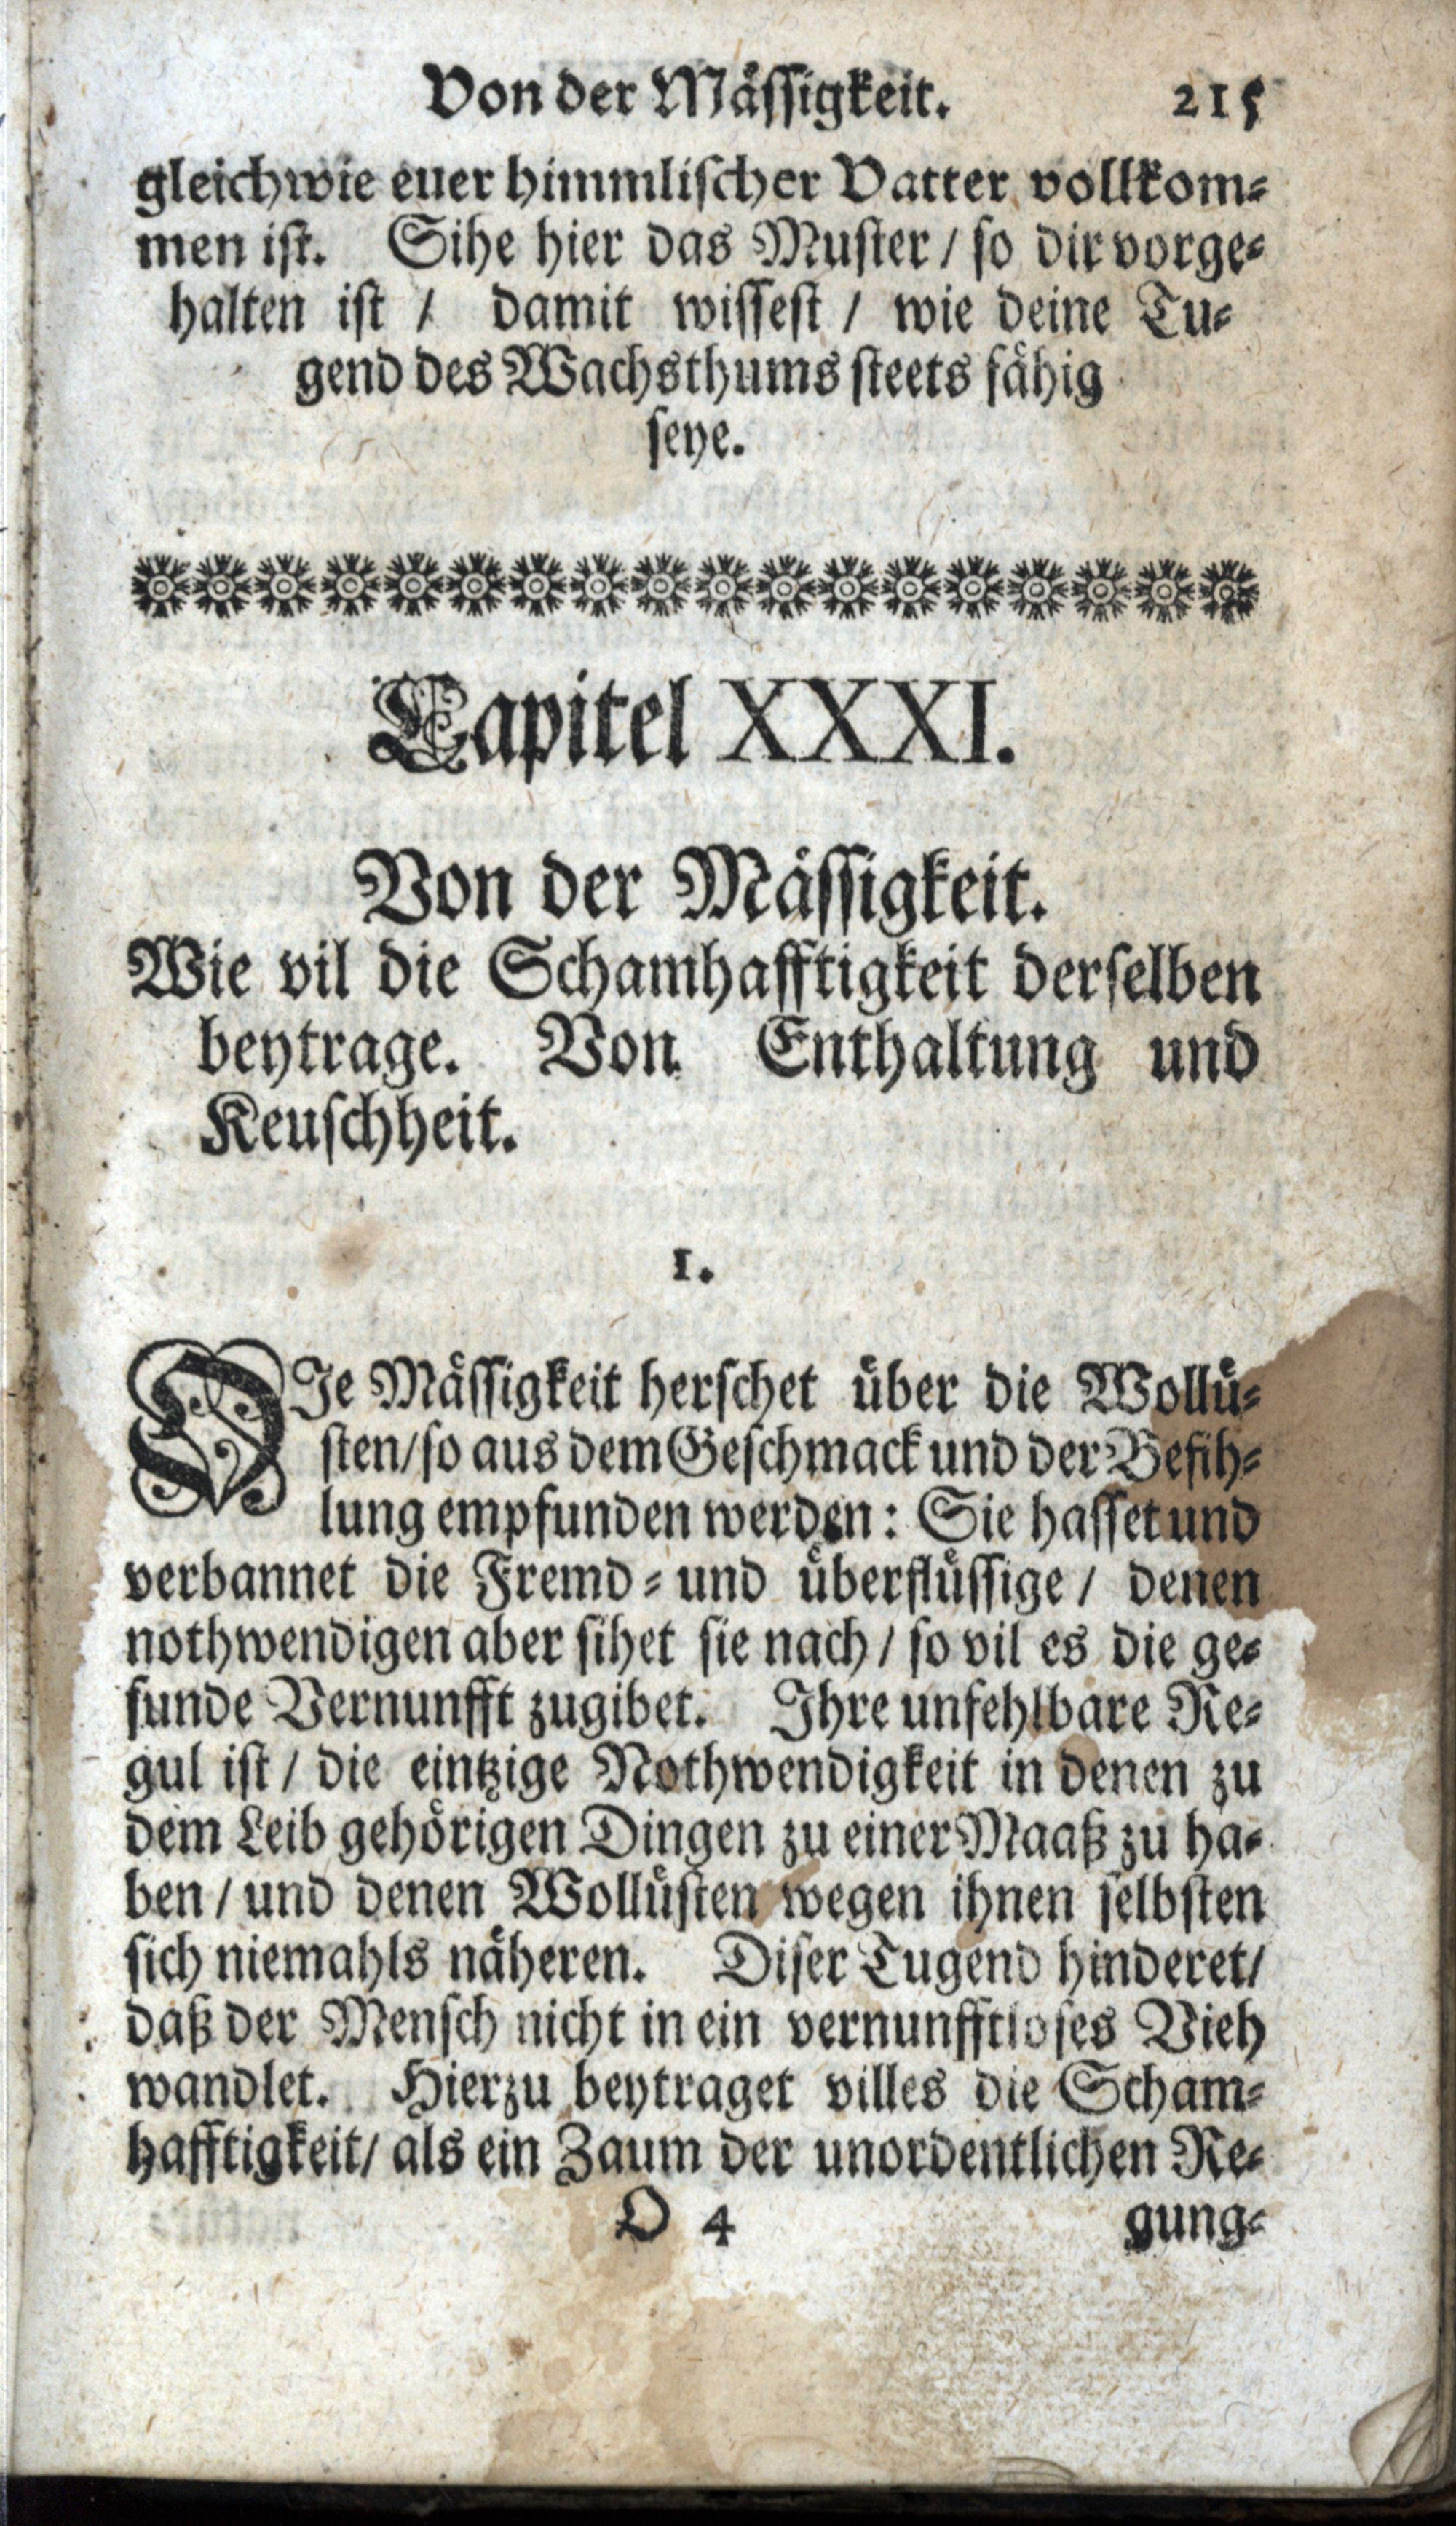 Von der Mässigkeit. 215
gleichwie euer himmlischer Vatter vollkom-
men ist. Sihe hier das Muster / so dir vorge-
halten ist / damit wissest / wie deine Tu-
gend des Wachsthums steets fähig
seye.
Capitel XXXI.
Von der Mässigkeit.
Wie vil die Schamhafftigkeit derselben
beytrage. Von Enthaltung und
Keuschheit.
1.
DIe Mässigkeit herschet über die Wollü-
sten/so aus dem Geschmack und der Befih-
lung empfunden werden: Sie hasset und
verbannet die Fremd- und überflüssige / denen
nothwendigen aber sihet sie nach / so vil es die ge-
sunde Vernunfft zugibet. Ihre unfehlbare Re-
gul ist / die eintzige Nothwendigkeit in denen zu
dem Leib gehörigen Dingen zu einer Maaß zu ha-
ben / und denen Wollüsten wegen ihnen selbsten
sich niemahls näheren. Diser Tugend hinderet/
daß der Mensch nicht in ein vernunfftloses Vieh
wandlet. Hierzu beytraget villes die Scham-
hafftigkeit/ als ein Zaum der unordentlichen Re-
O 4 gung-